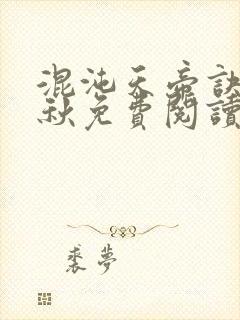 混沌天帝訣
秋免費閱讀
裘夢